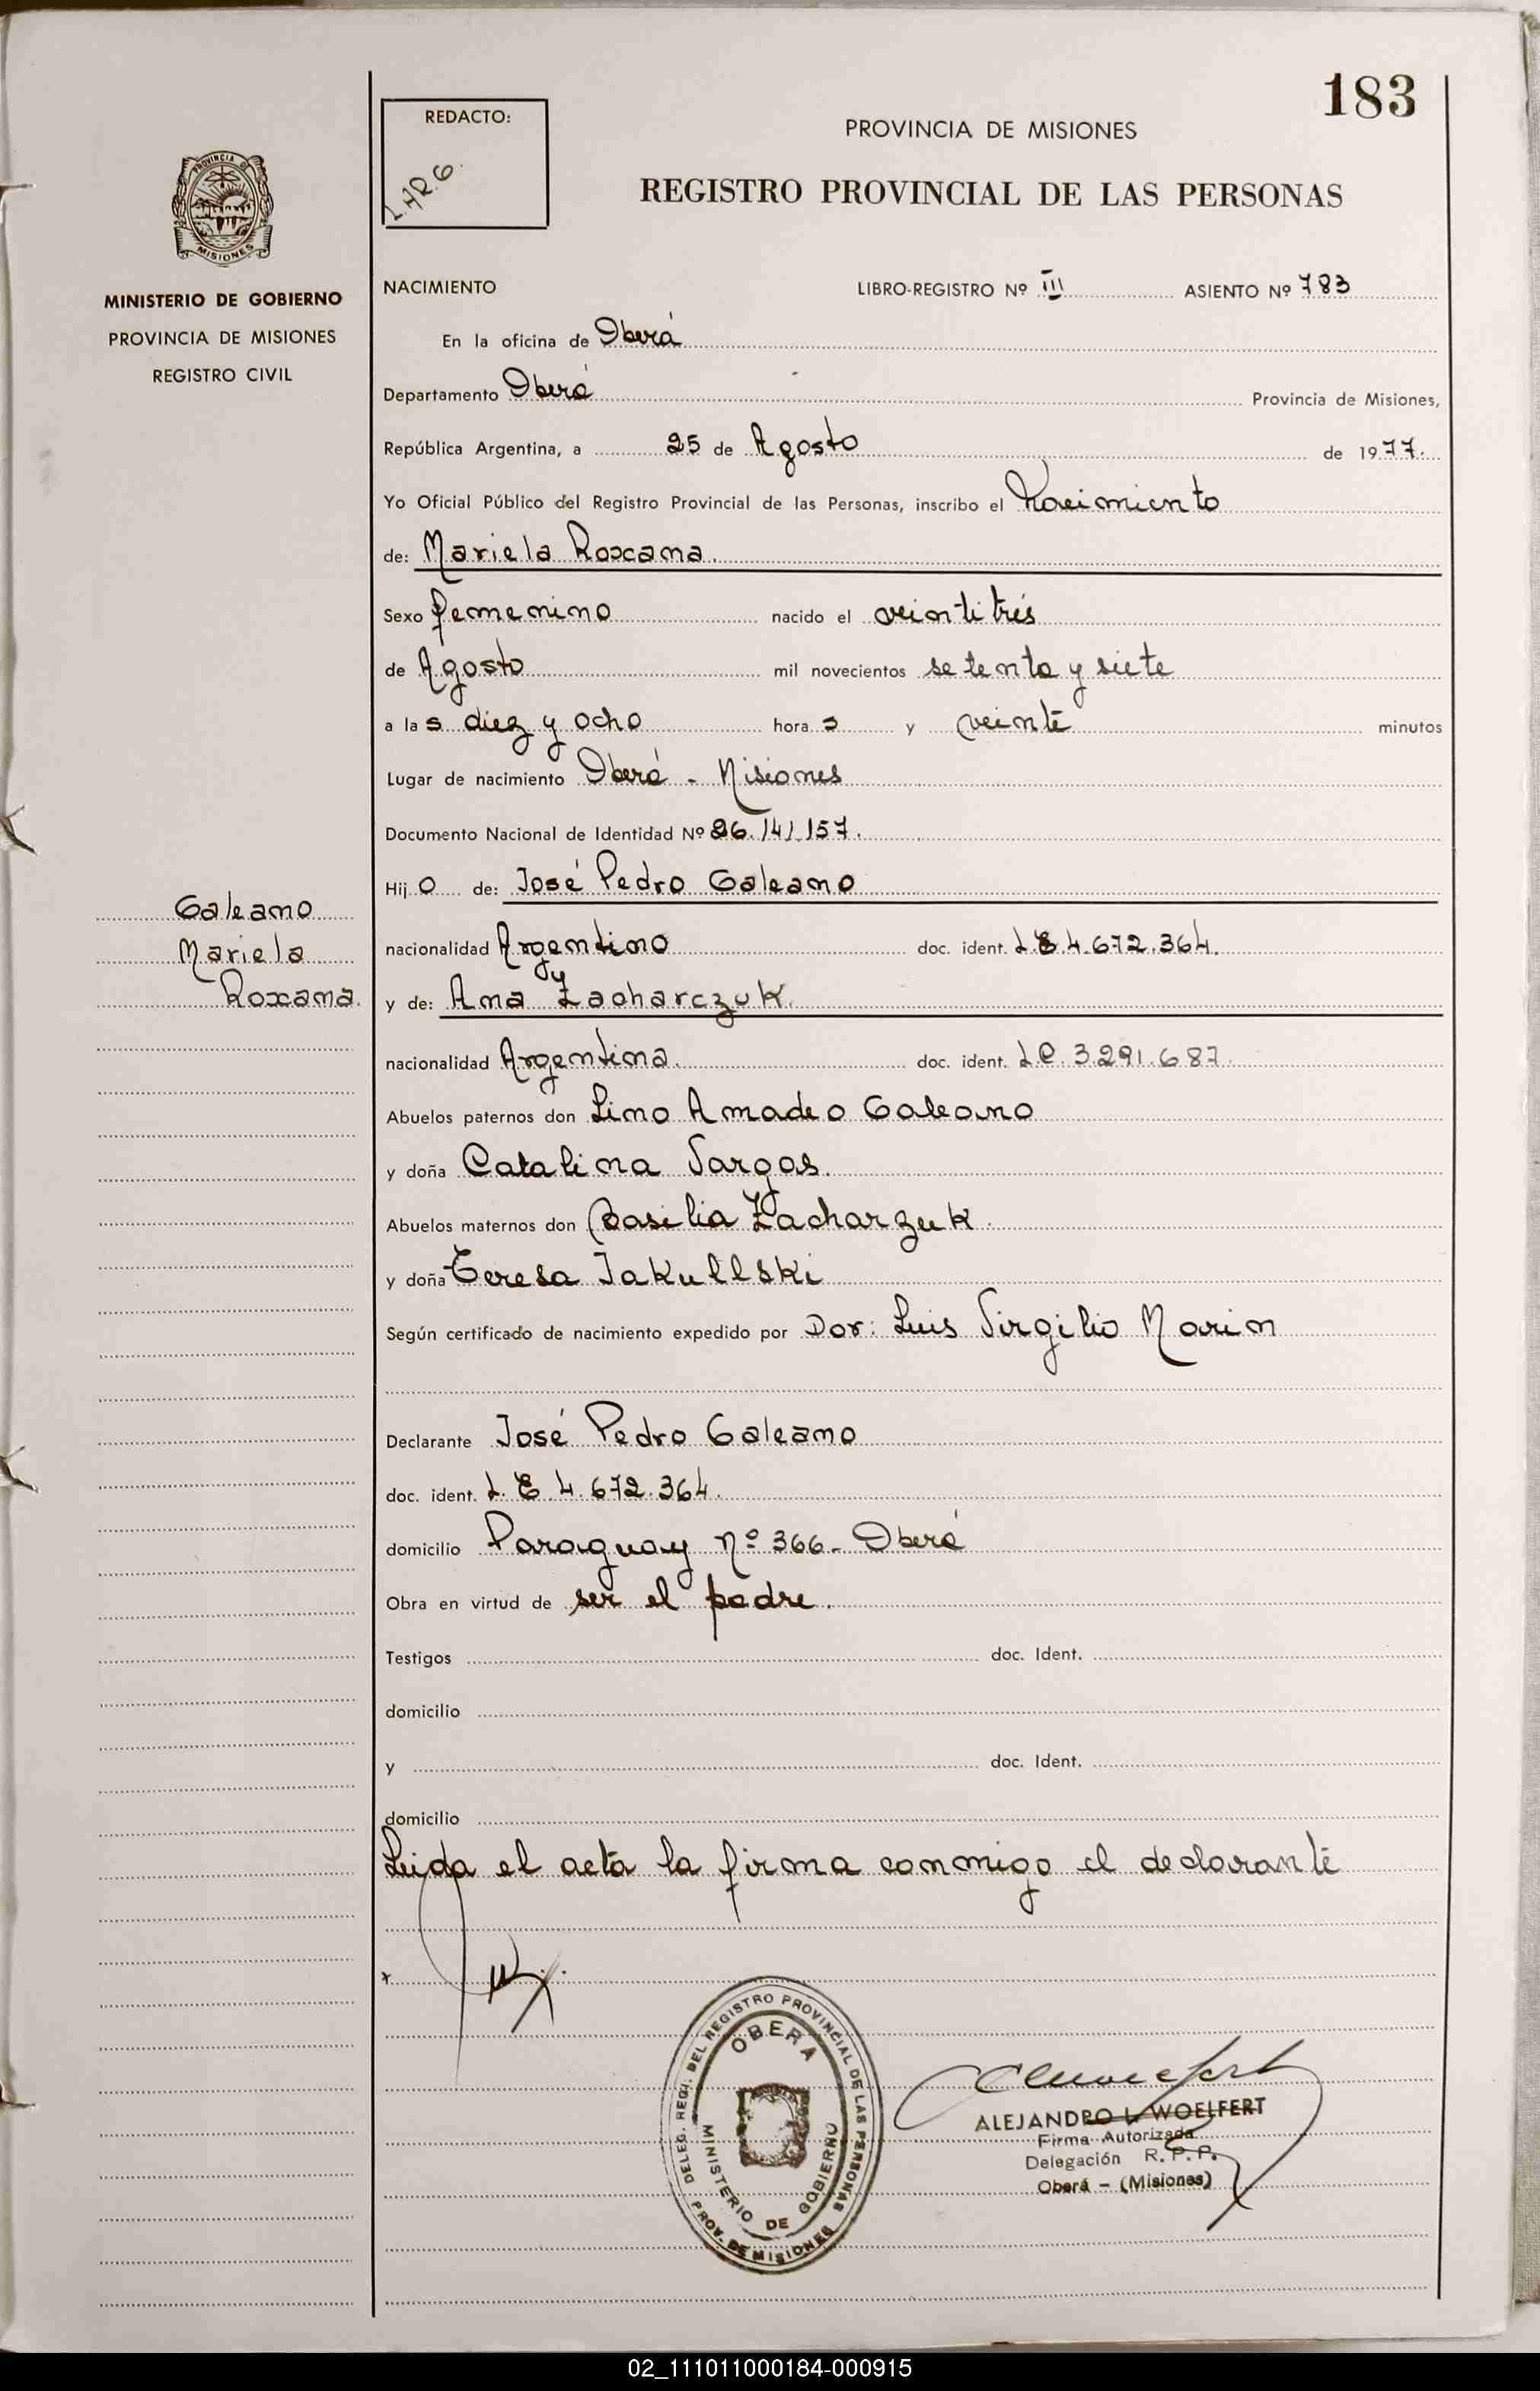 183
REDACTO:
PROVINCIA DE MISIONES
REGISTRO PROVINCIAL DE LAS PERSONAS
PROVINCIA DE
MISIONES
MINISTERIO DE GOBIERNO
PROVINCIA DE MISIONES
REGISTRO CIVIL
NACIMIENTO LIBRO-REGISTRO Nº III ASIENTO Nº 783
En la oficina de Oberá
Departamento Oberá Provincia de Misiones,
República Argentina, a 25 de Agosto de 1977.
Yo Oficial Público del Registro Provincial de las Personas, inscribo el Nacimiento
de: Mariela Roxana.
Sexo femenino nacido el veintitrés
de Agosto mil novecientos setenta y siete
a las diez y ocho horas y veinte minutos
Lugar de nacimiento Oberá - Misiones
Documento Nacional de Identidad Nº 26.141.157.
Hijo de: José Pedro Galeano
Galeano
Mariela
Roxana.
nacionalidad Argentino doc. ident. L.E.4.672.364.
y de: Ana Zacharczuk.
nacionalidad Argentina. doc. ident. L.C. 3.291.687.
Abuelos paternos don Lino Amadeo Galeano
y doña Catalina Vargas.
Abuelos maternos don Basilia Zacharzuk.
y doña Teresa Jakullski
Según certificado de nacimiento expedido por Dor: Luis Virgilio Marin
Declarante José Pedro Galeano
doc. ident. L.E. 4.672.364.
domicilio Paraguay nº 366- Oberá
Obra en virtud de ser el padre.
Testigos doc. Ident.
domicilio
y doc. Ident.
domicilio
Leida el acta la firma conmigo el declarante
DELEG. REGI. DEL REGISTRO PROVINCIAL DE LAS PERSONAS
OBERA
MINISTERIO DE GOBIERNO
PROV. DE MISIONES
ALEJANDRO L. WOELFERT
Firma Autorizada
Delegación R. P. P.
Oberá - (Misiones)
02_111011000184-000915